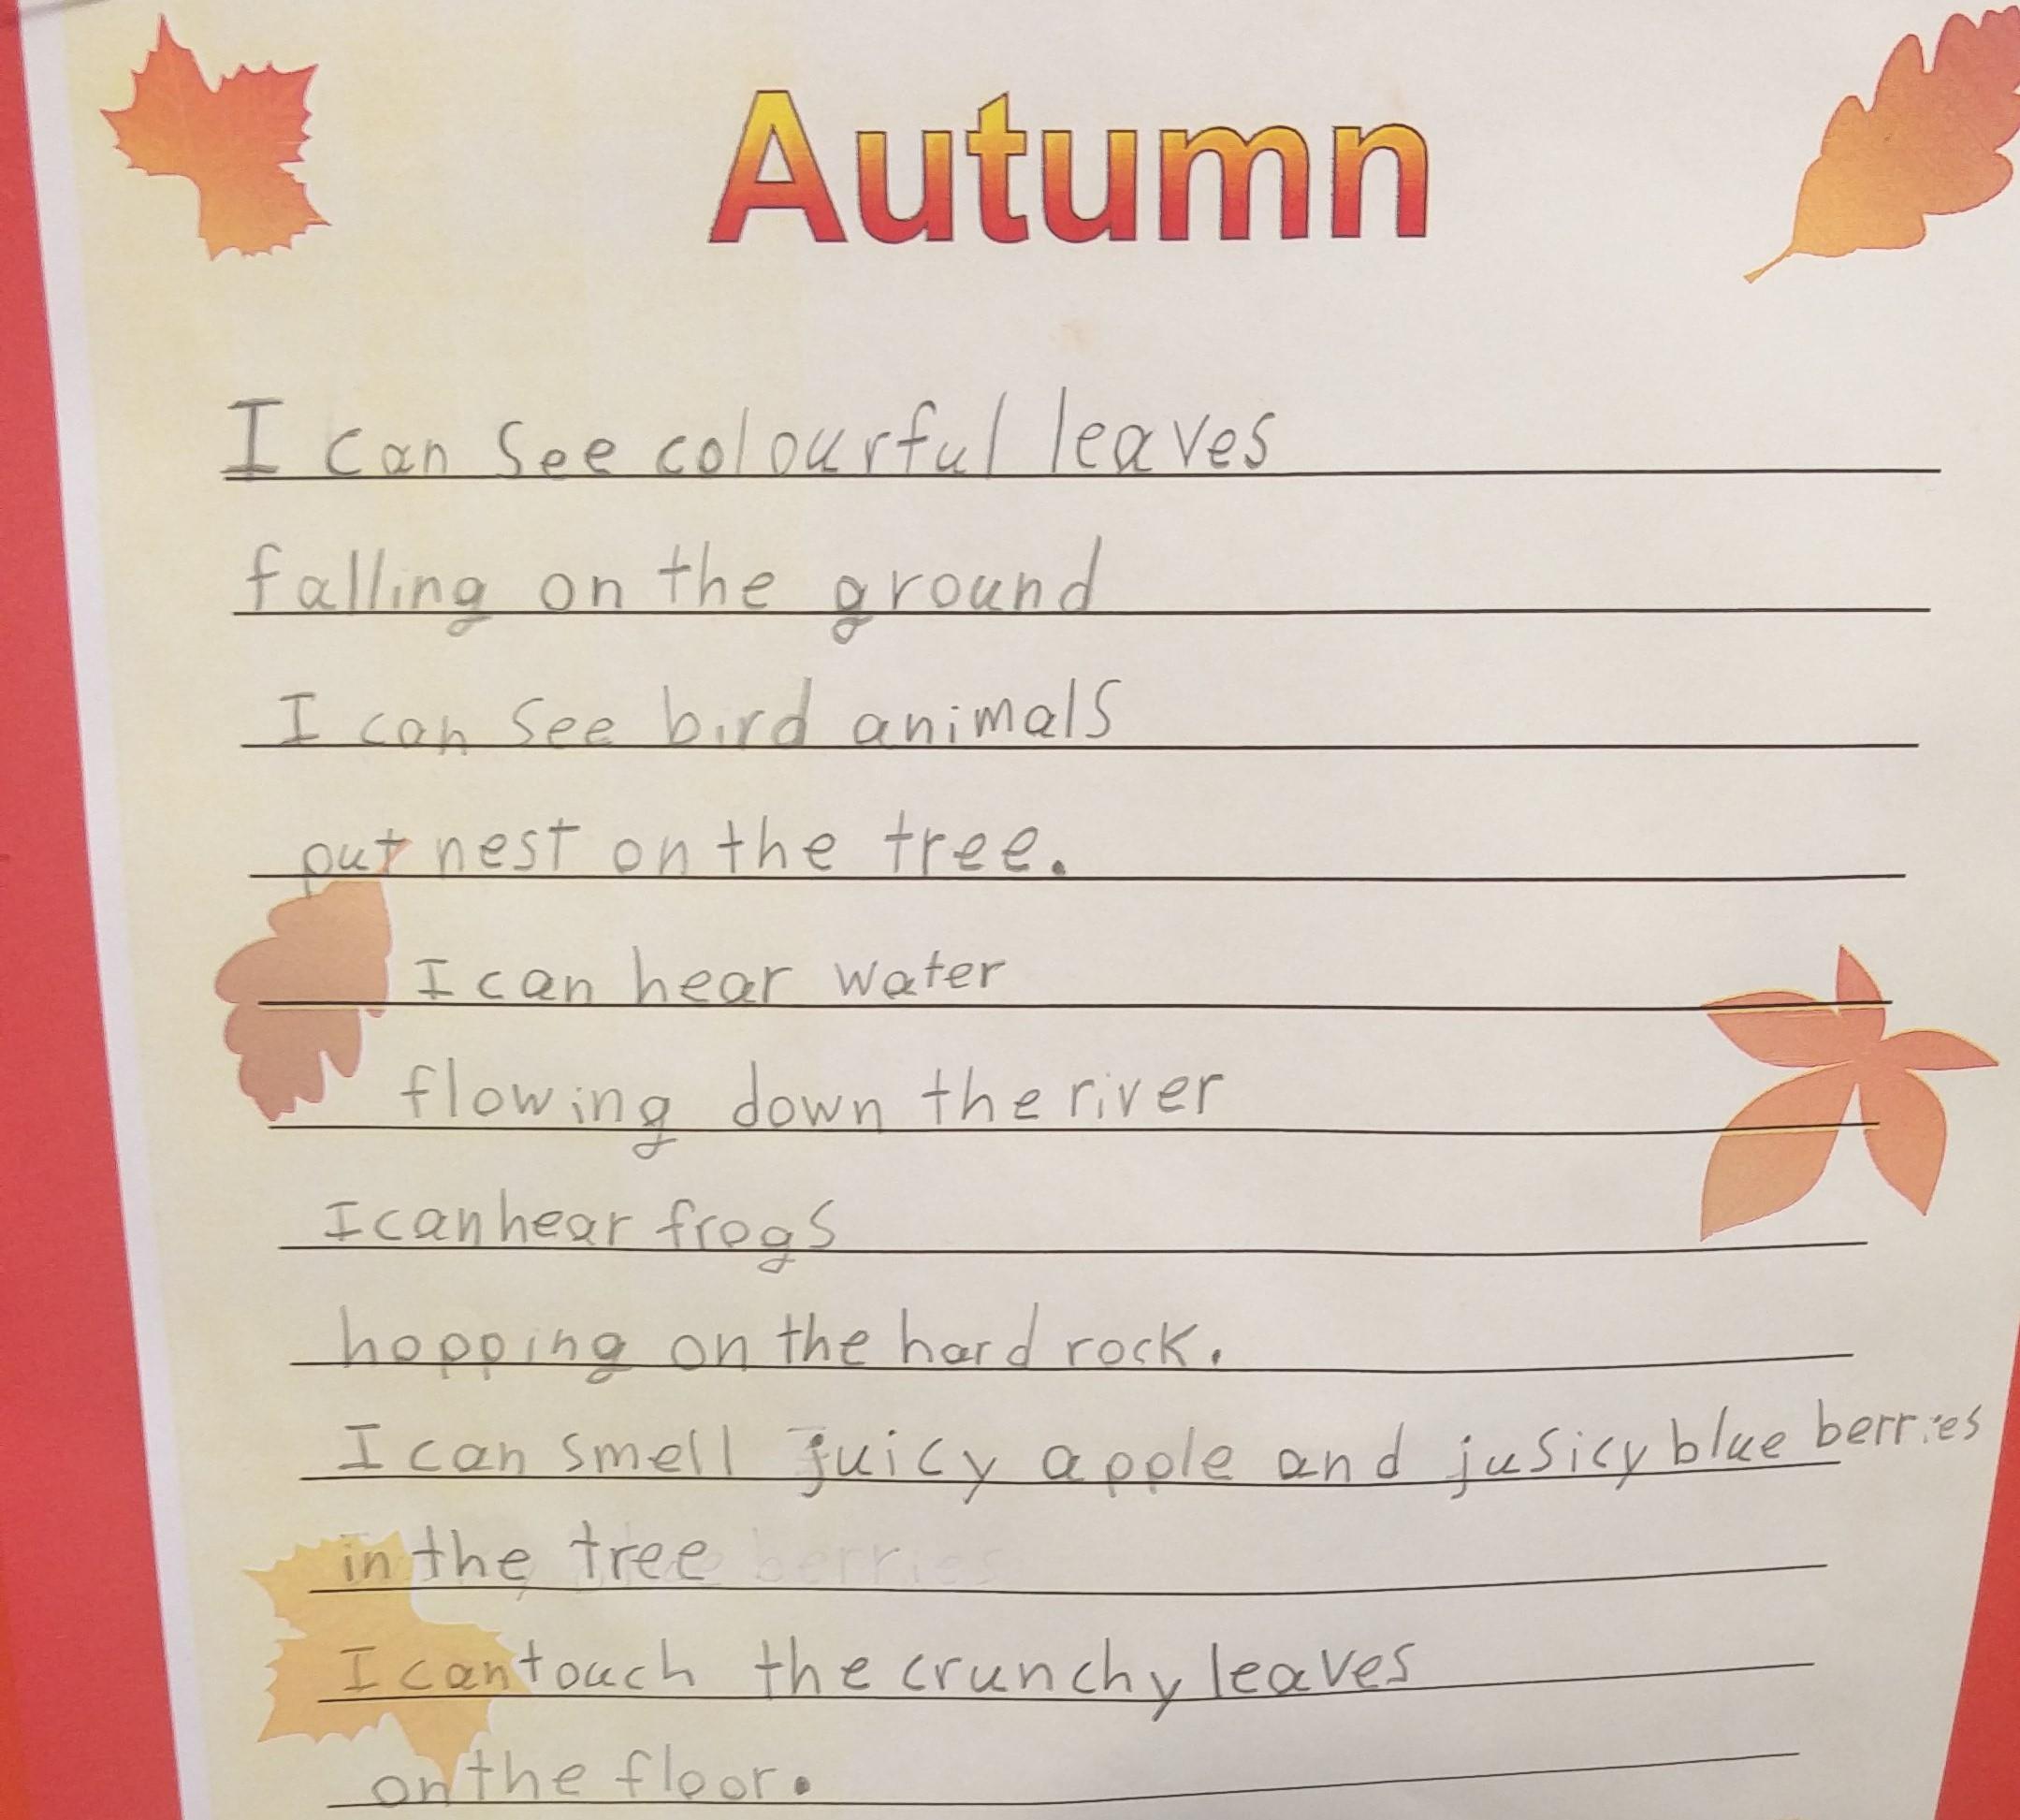 Autumn
I can see colourful leaves
falling on the ground
I can see bird animals
put nest on the tree.
I can hear water
flowing down the river
I can hear frogs
hopping on the hard rock.
I can smell juicy apple and jusicy blue berries
in the tree
I can touch the crunchy leaves
on the floor.